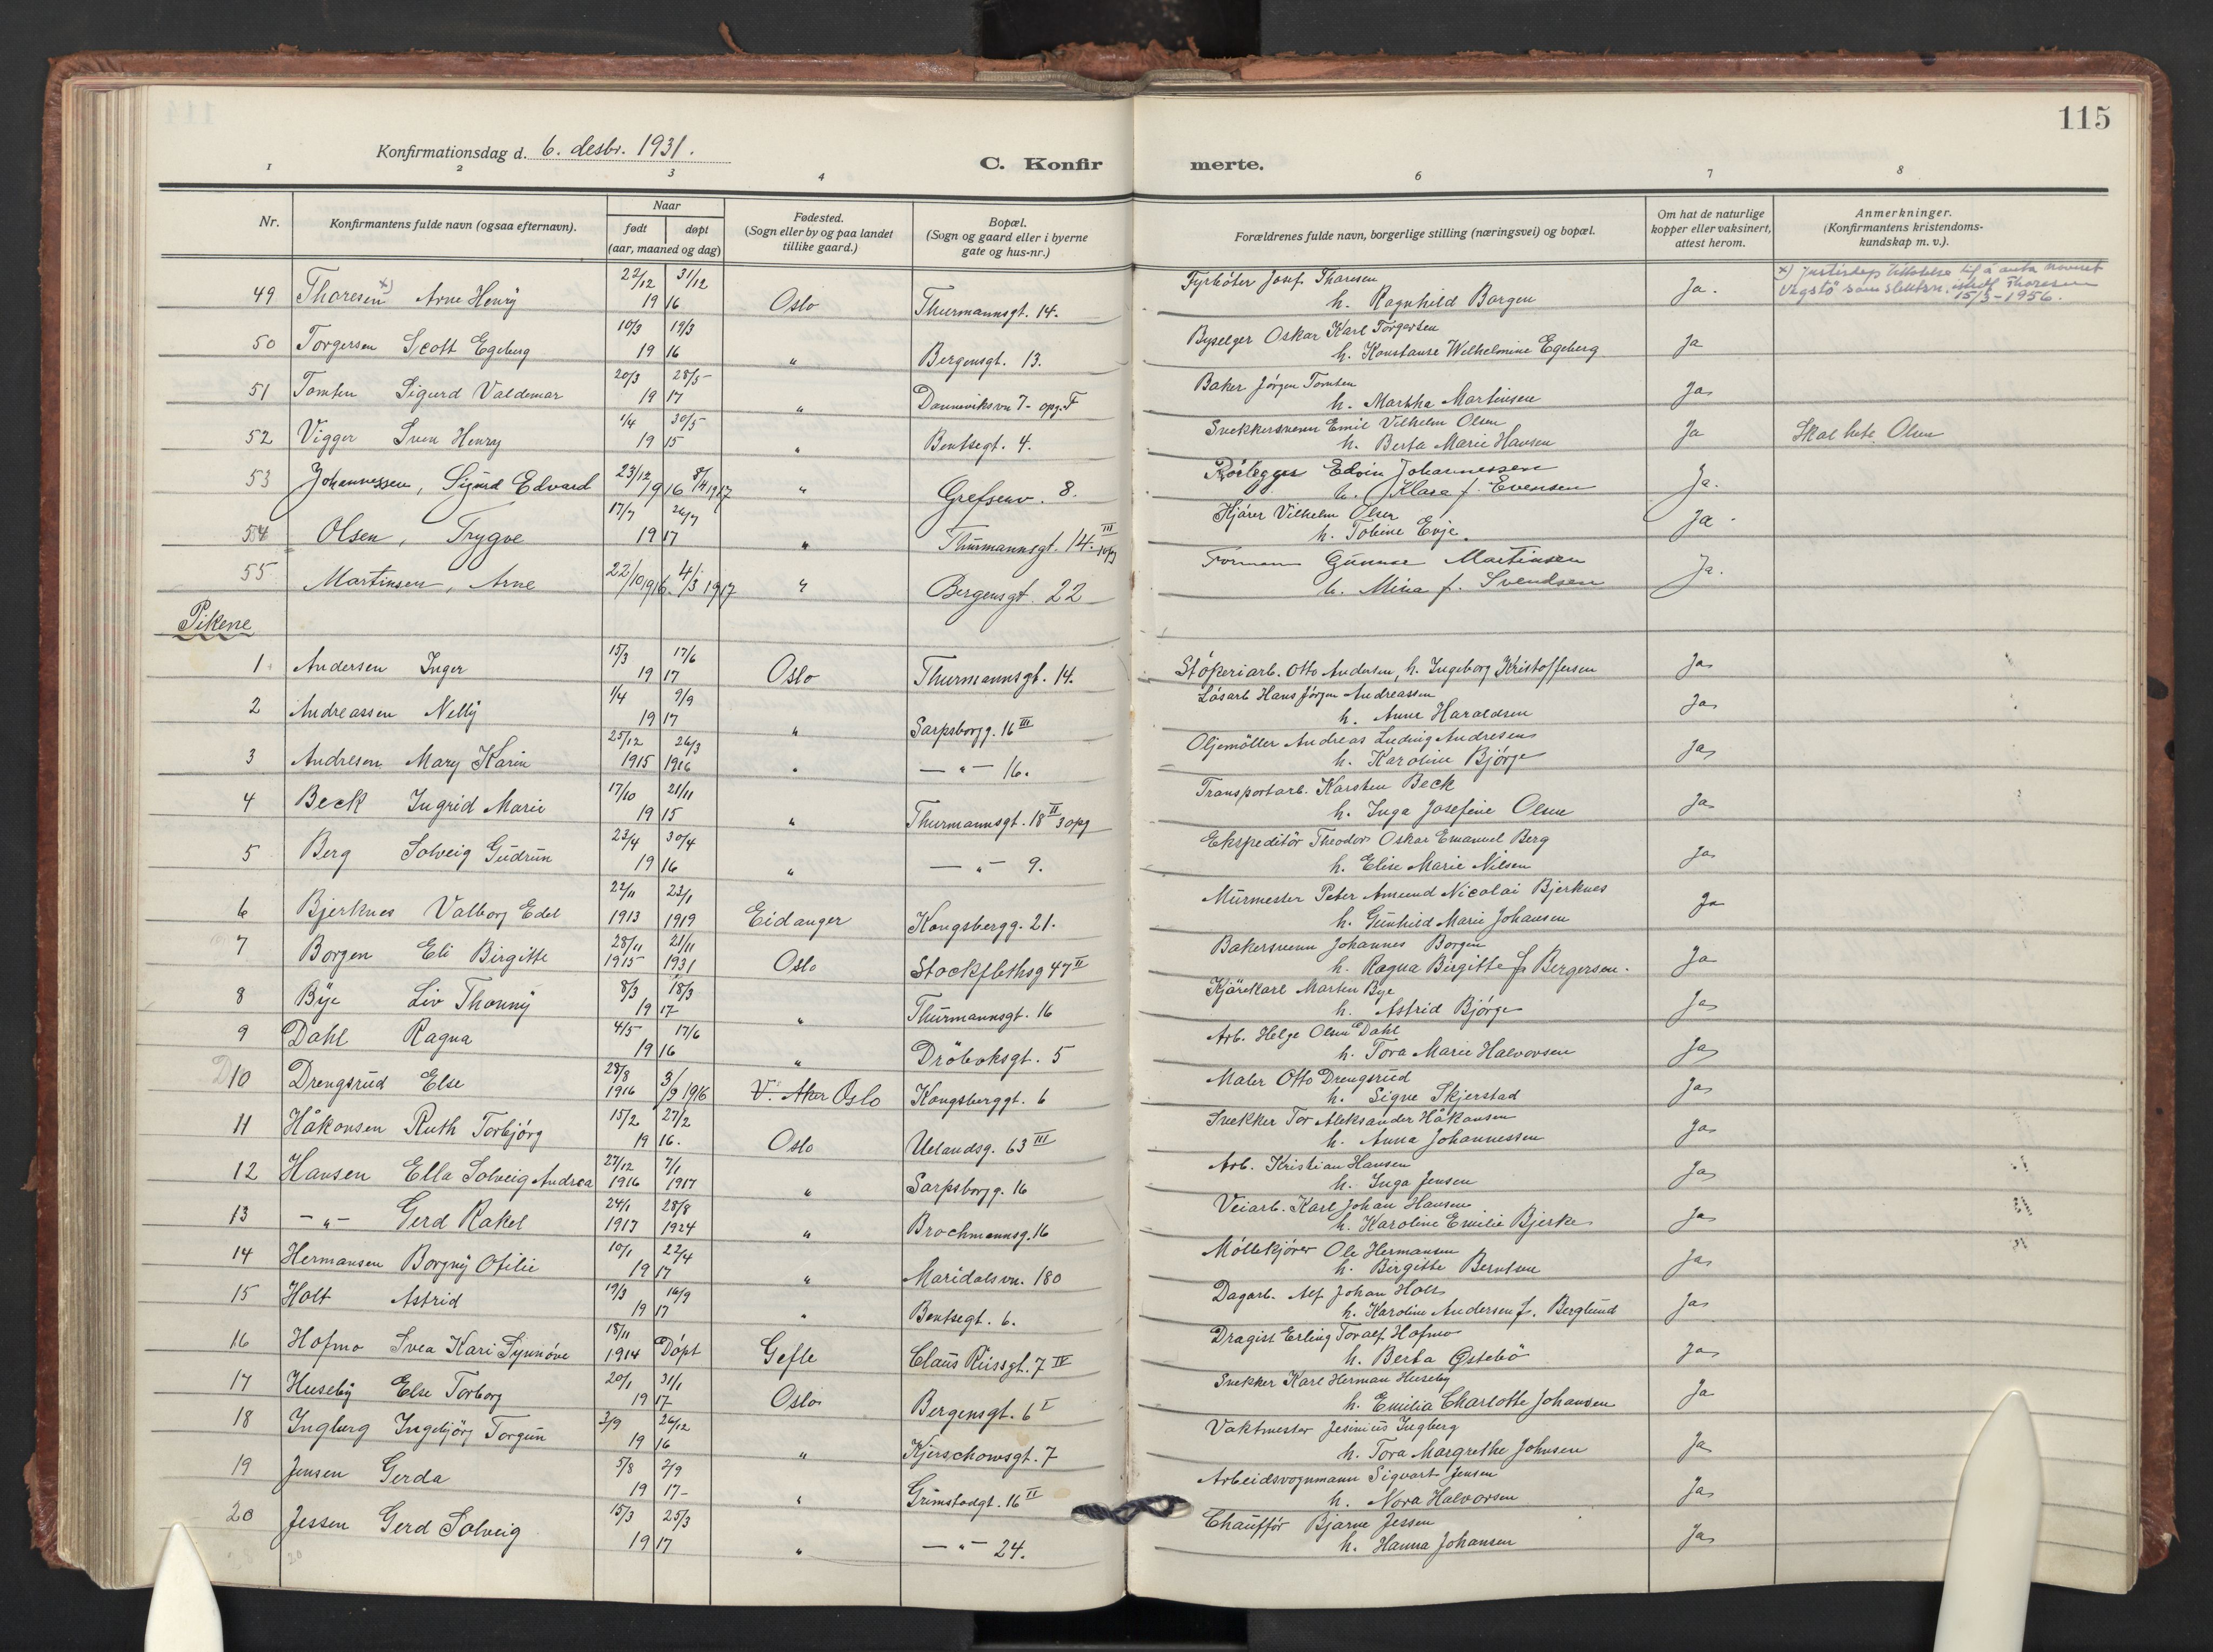 115
Konfirmationsdag d. 6. desbr. 1931.
C. Konfirmerte.
1 2 3 4 6 7 8
Nr. | Konfirmantens fulde navn (ogsaa efternavn). | Naar født døpt (aar, maaned og dag) | Fødested. (Sogn eller by og paa landet tillike gaard.) | Bopæl. (Sogn og gaard eller i byerne gate og hus-nr.) | Forældrenes fulde navn, borgerlige stilling (næringsvei) og bopæl. | Om hat de naturlige kopper eller vaksinert, attest herom. | Anmerkninger. (Konfirmantens kristendoms-kundskap m. v.).
49 Thoresen x) Arne Henry 22/12 31/12 1916 Oslo Thurmannsgt. 14. Fyrbøter Josef Thoresen h. Ragnhild Borgen Ja. x) Justisdep tillatelse til å anta navnet Vegstø som slektsn. istedf Thoresen 15/3-1956.
50 Torgersen Scott Egeberg 10/3 19/3 1916 " Bergensgt. 13. Byselger Oskar Karl Torgersen h. Konstanse Wilhelmine Egeberg Ja
51 Tomten Sigurd Valdemar 20/3 28/5 1917 " Danneviksvn 7- opg. F Baker Jørgen Tomten h. Martha Martinsen Ja
52 Vigger Sven Henry 1/4 30/5 1915 " Bentsegt. 4. Snekkersvenn Emil Vilhelm Olsen h. Berta Marie Hansen Ja Skal hete Olsen
53 Johannessen, Sigurd Edvard 23/12 1916 8/4 1917 " Grefsenv. 8. Rørlegger Edvin Johannessen h. Klara f. Evensen Ja.
54 Olsen, Trygve 17/7 26/7 1917 " Thurmannsgt. 14. III opg Kjører Vilhelm Olsen h. Tobine Evje. Ja.
55 Martinsen, Arne 22/10 1916. 4/3 1917 " Bergensgt. 22 Forman Gunnar Martinsen h. Mina f. Svendsen Ja.
Pikene
1 Andersen Inger 15/3 17/6 1917 Oslo Thurmannsgt. 14. Støperiarb. Otto Andersen, h. Ingeborg Kristoffersen Ja
2 Andreassen Nelly 1/4 9/9 1917 " Sarpsborgg. 16 III Løsarb Hans Jørgen Andreassen h. Anna Haraldsen Ja
3 Andresen Mary Karin 25/12 1915 26/3 1916 " — " — 16. Oljemøller Andreas Ludvig Andresen h. Karoline Bjørge Ja
4 Beck Ingrid Marie 17/10 21/11 1915 " Thurmannsgt. 18 II 3 opg Transportarb. Karsten Beck h. Inga Josefine Olsen Ja
5 Berg Solveig Gudrun 23/4 30/4 1916 " — " — 9. Ekspeditør Theodor Oskar Emanuel Berg h. Elise Marie Nilsen Ja
6 Bjerknes Valborg Edel 22/11 1913 23/1 1919 Eidanger Kongsbergg. 21. Murmester Peter Amund Nicolai Bjerknes h. Gunhild Marie Johansen Ja
7 Borgen Eli Birgitte 28/11 1915 21/11 1931 Oslo Stockflethsg 47 II Bakersvenn Johannes Borgen h. Ragna Birgitte f. Bergersen. Ja
8 Bye Liv Thonny 8/3 18/3 1917 " Thurmannsgt. 16 Kjørekarl Marten Bye h. Astrid Bjørge Ja
9 Dahl Ragna 4/5 17/6 1916 " Drøbaksgt. 5 Arb. Helge Olsen Dahl h. Tora Marie Halvorsen Ja
10 Drengsrud Else 28/8 1916 3/9 1916 V. Aker Oslo Kongsberggt. 6 Maler Otto Drengsrud h. Signe Skjerstad Ja
11 Håkonsen Ruth Torbjørg 15/2 27/2 1916. Oslo Uelandsg. 63 III Snekker Tor Aleksander Håkonsen h. Anna Johannessen Ja
12 Hansen Ella Solveig Andrea 27/12 1916 7/1 1917 " Sarpsborgg. 16 Arb. Kristian Hansen h. Inga Jensen Ja
13 — " — Gerd Rakel 24/1 1917 28/8 1924 " Brochmannsg. 16 Veiarb. Karl Johan Hansen h. Karoline Emilie Bjerke Ja
14 Hermansen Borgny Otilie 10/1 22/4 1917 " Maridalsvn. 180 Møllekjører Ole Hermansen h. Birgitte Berntsen Ja
15 Holt Astrid 19/3 16/9 1917 " Bentsegt. 6. Dagarb. Alf Johan Holt h. Karoline Andersen f. Berglund Ja
16 Hofmo Svea Kari Synnøve 18/11 1914 Døpt Gefle Claus Riisgt. 7 IV Dragist Erling Toralf Hofmo h. Berta Østebø Ja
17 Huseby Else Torborg 20/1 31/1 1917 Oslo Bergensgt. 6 I Snekker Karl Herman Huseby h. Emilia Charlotte Johansen Ja
18 Ingberg Ingebjørg Torgun 3/9 26/12 1916 " Kjerschowsgt. 7 Vaktmester Jesinius Ingberg h. Tora Margrethe Johnsen Ja
19 Jensen Gerda 5/8 2/9 1917- " Grimstadgt. 16 II Arbeidsvognmann Sigvart Jensen h. Nora Halvorsen Ja
20 Jessen Gerd Solveig 15/3 25/3 1917 " — " — 24. Chauffør Bjarne Jessen h. Hanna Johansen Ja